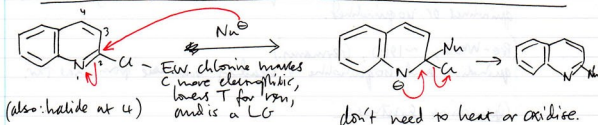 4
3
2
N
1
Cl
Nu⊖
- E.W. chlorine makes
C₂ more electrophilic,
lowers T for rxn,
and is a LG
(also: halide at 4)
Nu
Cl
N
⊖
N
Nu
don't need to heat or oxidise.